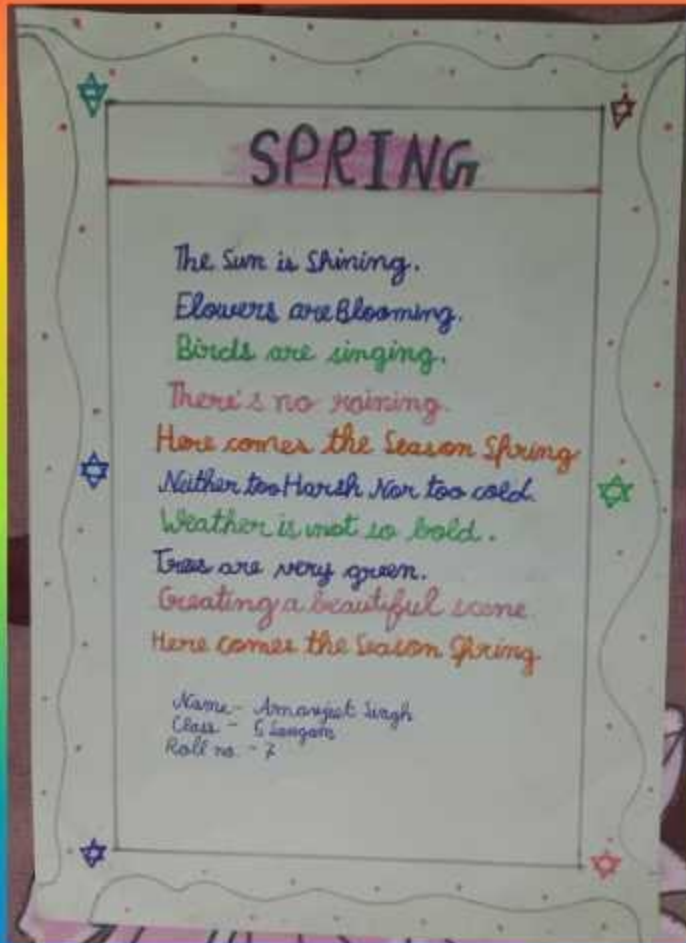 SPRING
The Sun is Shining.
Flowers are Blooming.
Birds are singing.
There's no raining.
Here comes the Season Spring
Neither too Harsh Nor too cold.
Weather is not so bold.
Trees are very green.
Creating a beautiful scene
Here comes the Season Spring
Name - Amarjeet Singh
Class - 5 Sangam
Roll no. - 7